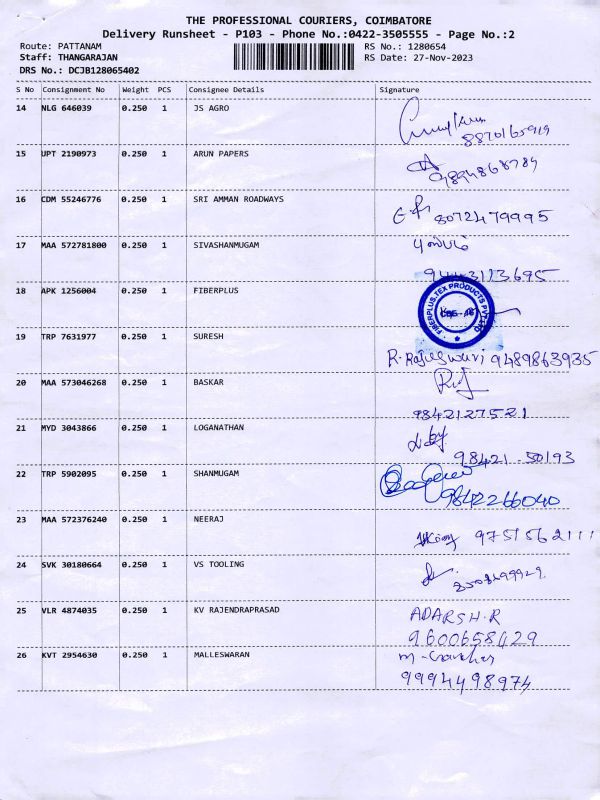 THE PROFESSIONAL COURIERS, COIMBATORE
Delivery Runsheet - P103 - Phone No.:0422-3505555 - Page No.:2
Route: PATTANAM RS No.: 1280654
Staff: THANGARAJAN RS Date: 27-Nov-2023
DRS No.: DCJB128065402
S No Consignment No Weight PCS Consignee Details Signature
14 NLG 646039 0.250 1 JS AGRO
8870165919
15 UPT 2190973 0.250 1 ARUN PAPERS
9894868789
16 CDM 55246776 0.250 1 SRI AMMAN ROADWAYS
8072479995
17 MAA 572781800 0.250 1 SIVASHANMUGAM
9443123695
18 APK 1256004 0.250 1 FIBERPLUS
FIBERPLUS TEX PRODUCTS PVT LTD
19 TRP 7631977 0.250 1 SURESH
R. Rajeswari 9489863935
20 MAA 573046268 0.250 1 BASKAR
9842127521
21 MYD 3043866 0.250 1 LOGANATHAN
98421 50193
22 TRP 5902095 0.250 1 SHANMUGAM
9842266040
23 MAA 572376240 0.250 1 NEERAJ
9751562111
24 SVK 30180664 0.250 1 VS TOOLING
25 VLR 4874035 0.250 1 KV RAJENDRAPRASAD
ADARSH.R
9600658429
26 KVT 2954630 0.250 1 MALLESWARAN
9994498974